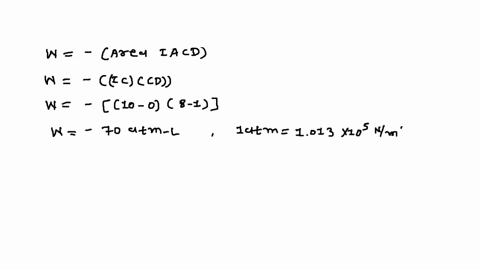 W = - (Area IACD)
W = - ((IC)(CD))
W = - [(10-0)(8-1)]
W = - 70 atm-L , 1atm = 1.013 ×10⁵ N/m'